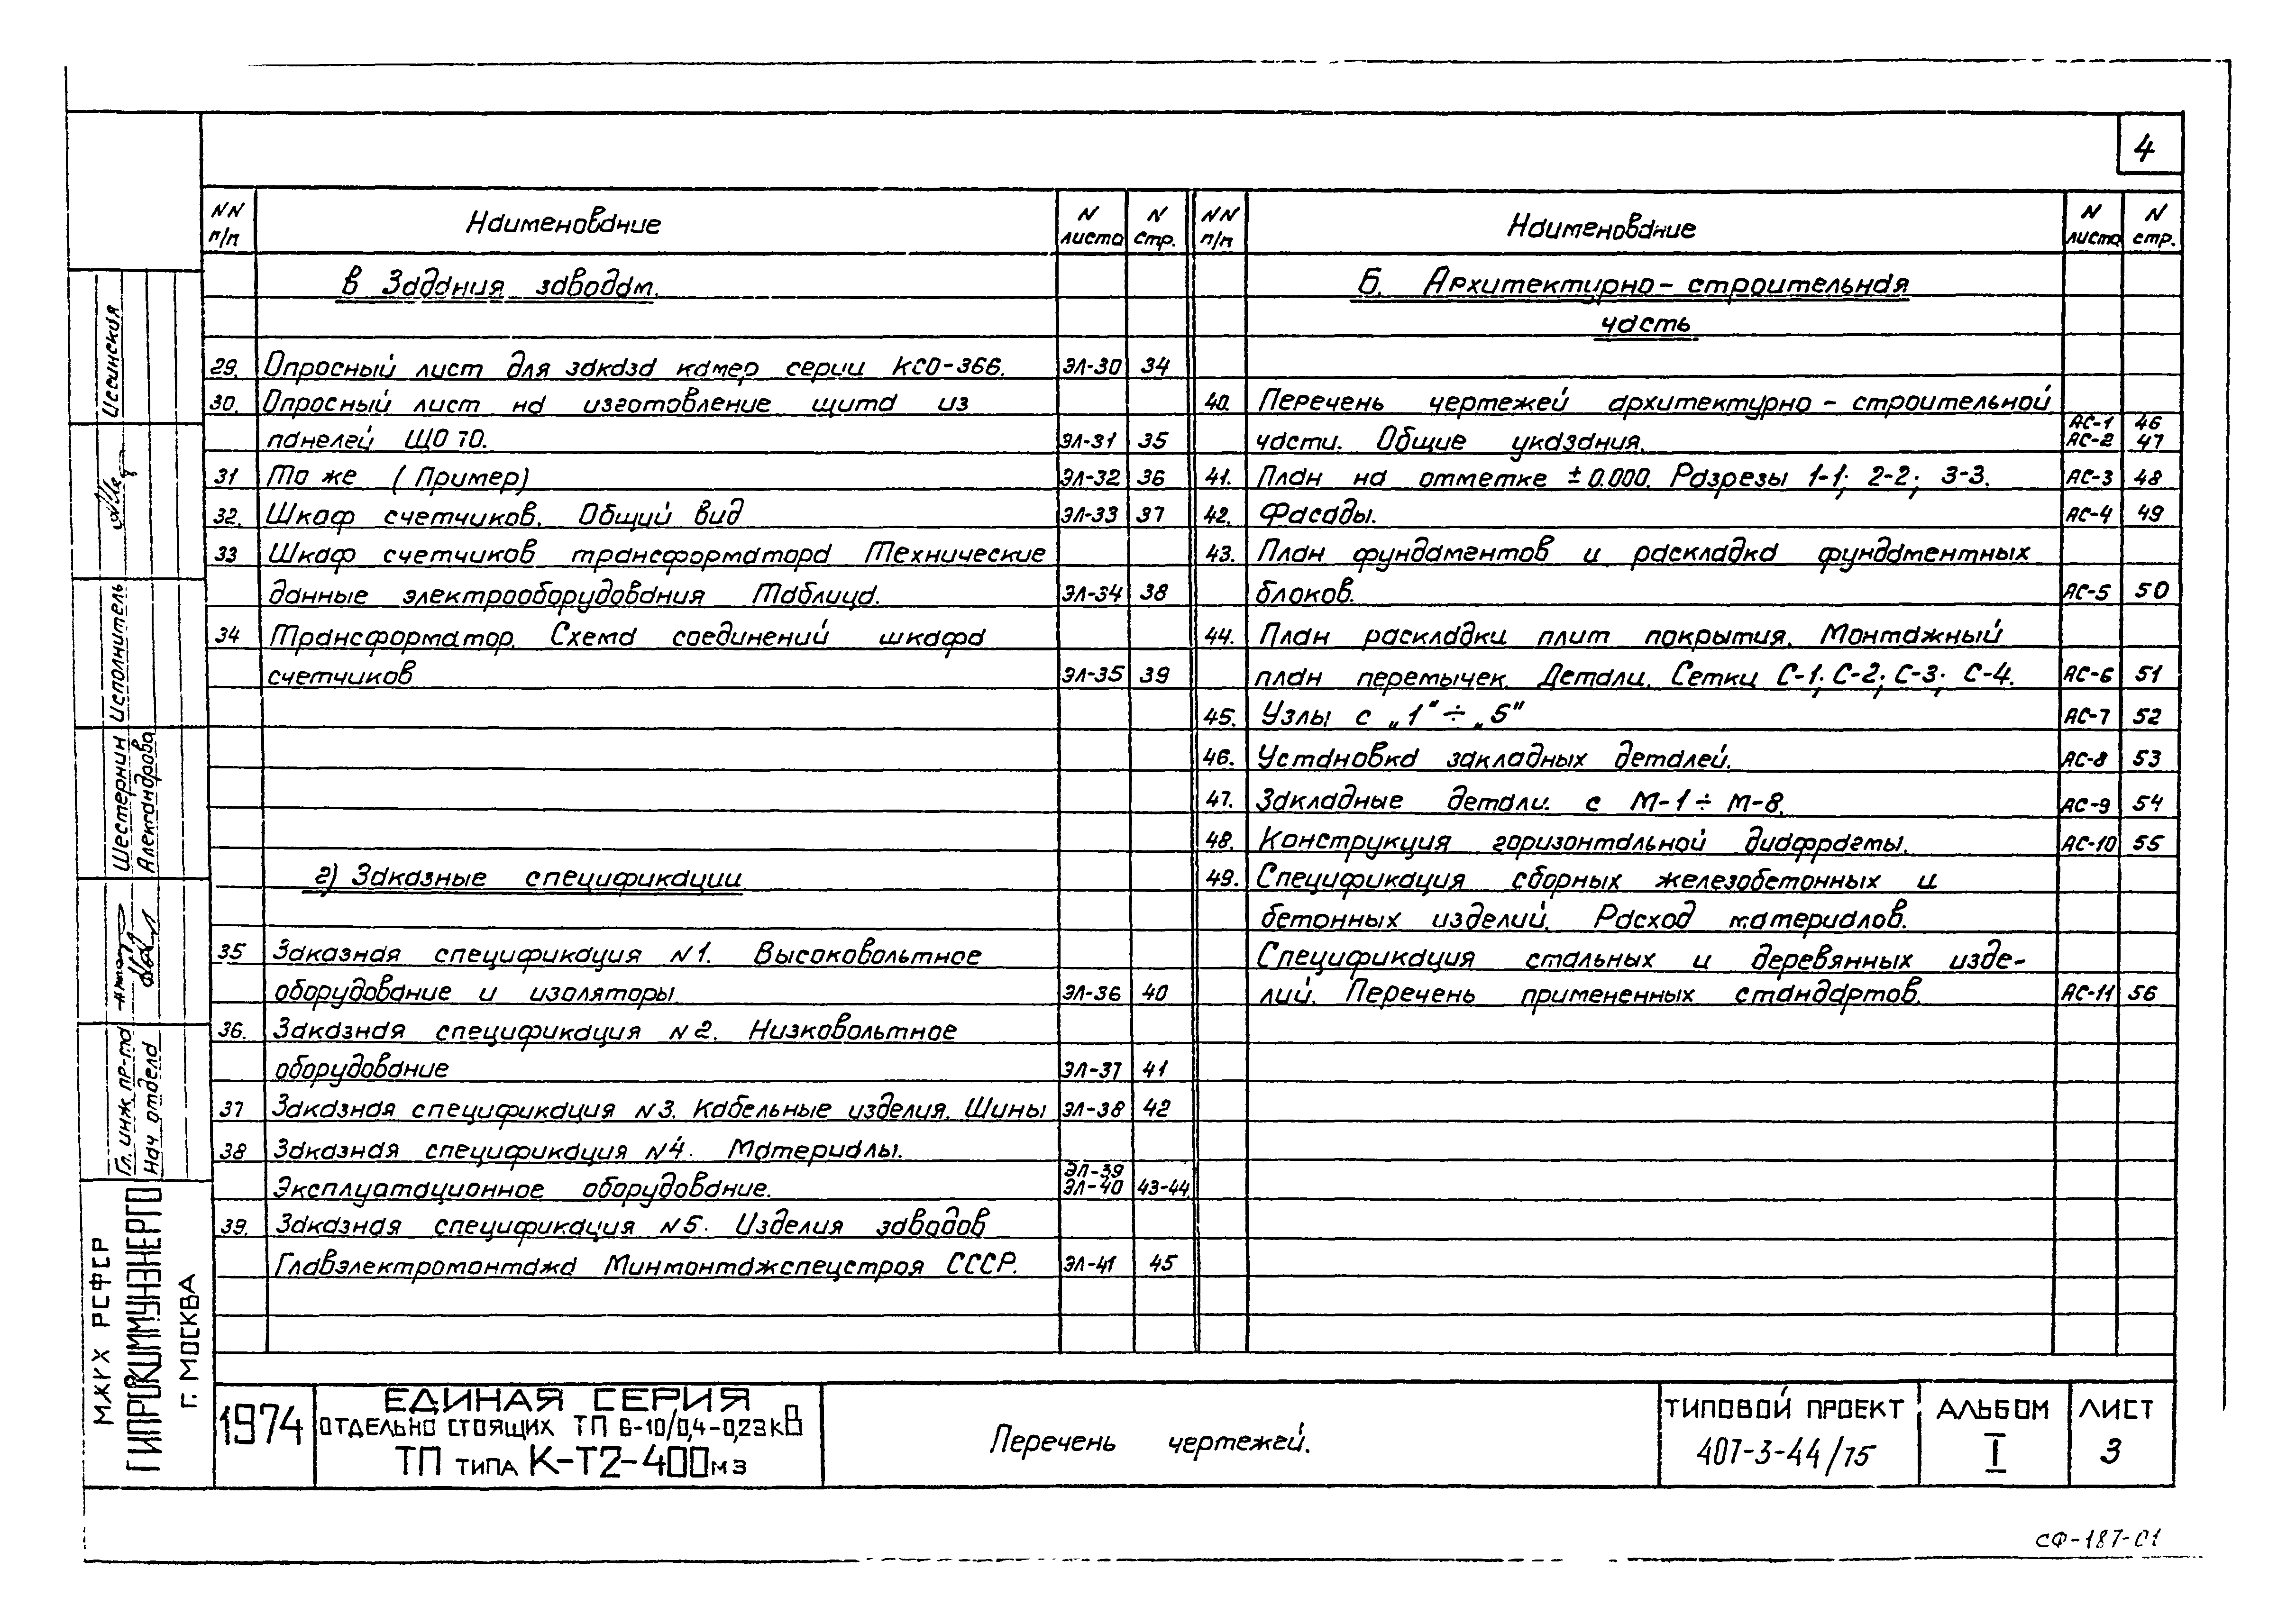 4
NN п/п Наименование N листа N стр.
в Задания заводам.
29. Опросный лист для заказа камер серии КСО-366. ЭЛ-30 34
30. Опросный лист на изготовление щита из
панелей ЩО 70. ЭЛ-31 35
31 То же (Пример) ЭЛ-32 36
32. Шкаф счетчиков. Общий вид ЭЛ-33 37
33 Шкаф счетчиков трансформатора Технические
данные электрооборудования Таблица. ЭЛ-34 38
34 Трансформатор. Схема соединений шкафа
счетчиков ЭЛ-35 39
г) Заказные спецификации
35 Заказная спецификация N1. Высоковольтное
оборудование и изоляторы. ЭЛ-36 40
36. Заказная спецификация N2. Низковольтное
оборудование ЭЛ-37 41
37 Заказная спецификация N3. Кабельные изделия. Шины ЭЛ-38 42
38 Заказная спецификация N4. Материалы.
ЭЛ-39
Эксплуатационное оборудование. ЭЛ-40 43-44
39. Заказная спецификация N5. Изделия заводов
Главэлектромонтажа Минмонтажспецстроя СССР. ЭЛ-41 45
NN п/п Наименование N листа N стр.
Б. Архитектурно-строительная
часть
40. Перечень чертежей архитектурно-строительной
АС-1 46
части. Общие указания. АС-2 47
41. План на отметке ±0.000. Разрезы 1-1; 2-2; 3-3. АС-3 48
42. Фасады. АС-4 49
43. План фундаментов и раскладка фундаментных
блоков. АС-5 50
44. План раскладки плит покрытия. Монтажный
план перемычек. Детали. Сетки С-1; С-2; С-3; С-4. АС-6 51
45. Узлы с „1" ÷ „5" АС-7 52
46. Установка закладных деталей. АС-8 53
47. Закладные детали. с М-1 ÷ М-8. АС-9 54
48. Конструкция горизонтальной диафрагмы. АС-10 55
49. Спецификация сборных железобетонных и
бетонных изделий. Расход материалов.
Спецификация стальных и деревянных изде-
лий. Перечень примененных стандартов. АС-11 56
Гл. инж. пр-та Шестернин Исполнитель
Нач отдела Александрова
МЖКХ РСФСР
ГИПРОКОММУНЭНЕРГО
Г. МОСКВА
1974
ЕДИНАЯ СЕРИЯ
ОТДЕЛЬНО СТОЯЩИХ ТП 6-10/0,4-0,23кВ
ТП ТИПА К-Т2-400мз
Перечень чертежей.
ТИПОВОЙ ПРОЕКТ
407-3-44/75
АЛЬБОМ
I
ЛИСТ
3
СФ-187-01